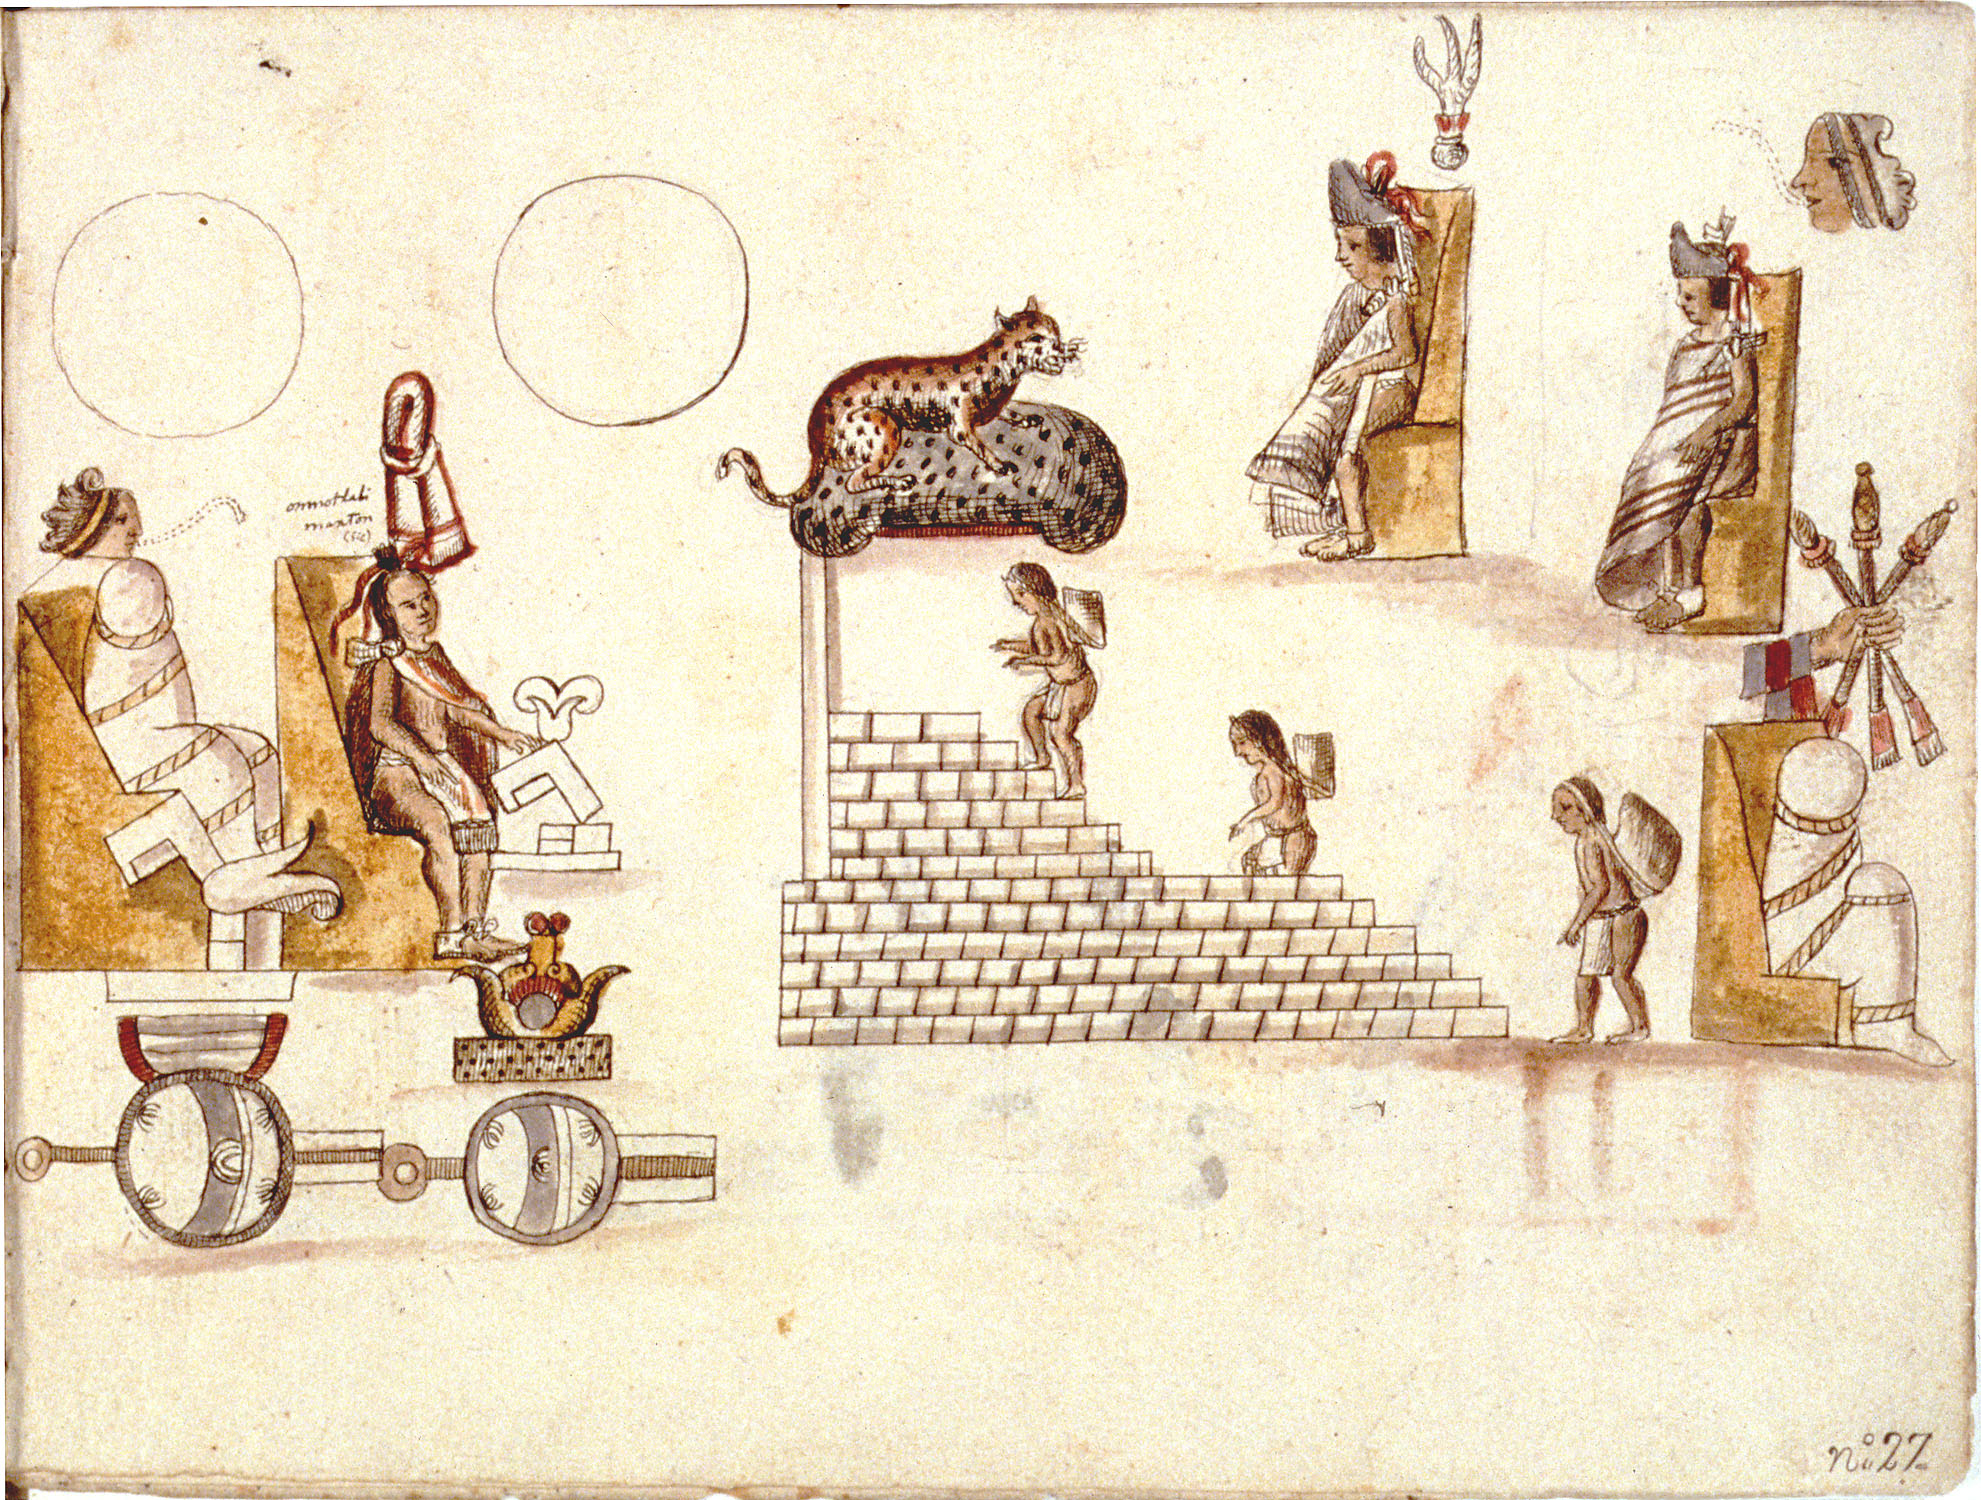 ommotlali
maxton
(sic)
nº 27